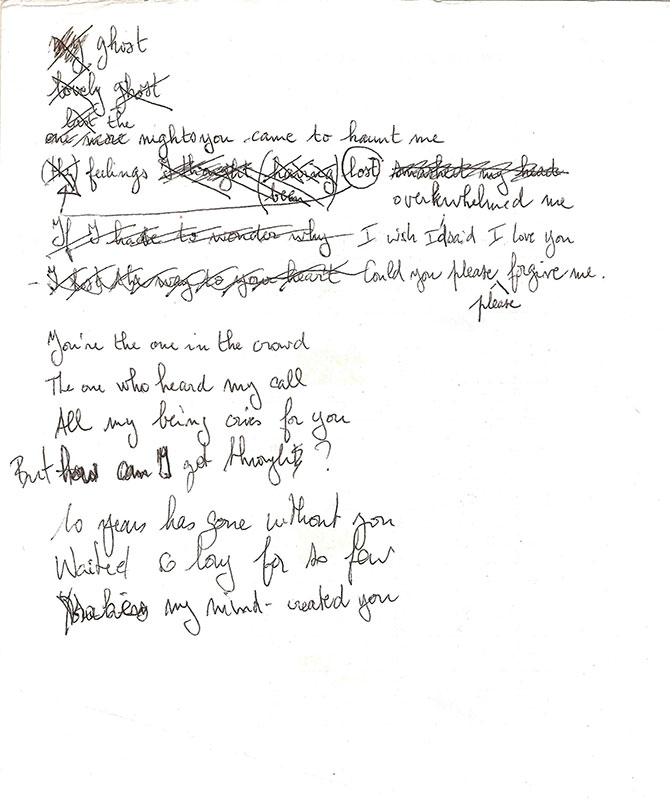 my ghost
lovely ghost
last the
one more nights you came to haunt me
(My) feelings I thought (having been) lost my head
overkwhelmed me
If I had to wonder why I wish I'd said I love you
- I lost the way to your heart Could you please forgive me.
please
You're the one in the crowd
The one who heard my call
All my being cries for you
But how can I get throught?
10 years has gone without you
Waited so long for so few
my mind - created you